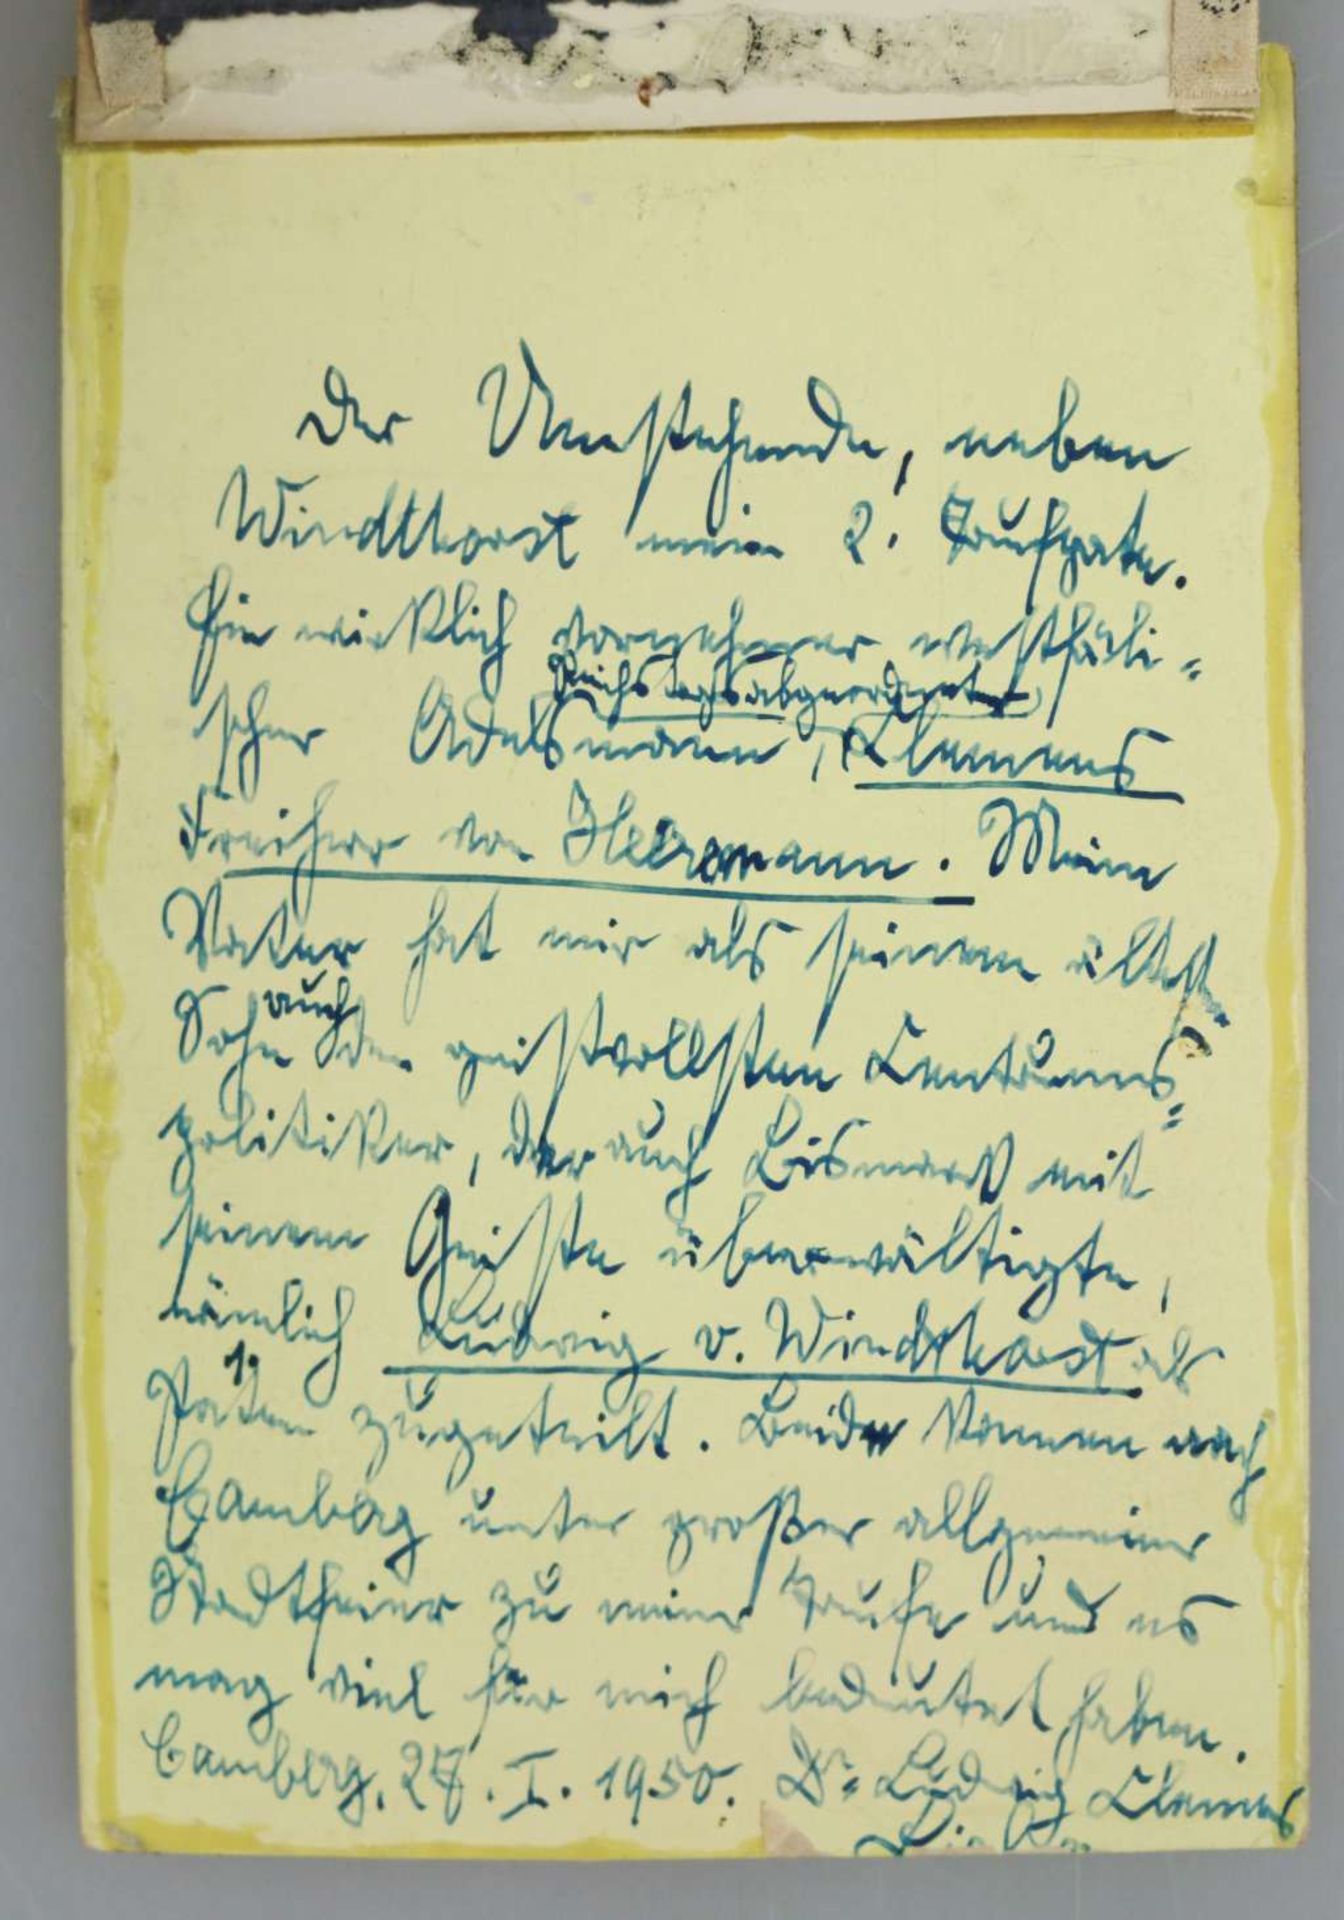 Der Umstehende, neben
Windthorst mein 2. Taufpate.
Ein wirklich vornehmer westfäli-
Reichstagsabgeordneter
scher Adelsmann, Clemens
Freiherr von Heereman. Mein
Vater hat mir als seinem ältesten
auch
Sohn den geistvollsten Centrums-
politiker, der auch Bismarck mit
seinem Geiste überwältigte,
nämlich Ludwig v. Windthorst als
1.
Paten zugeteilt. Beide kamen nach
Camberg unter großer allgemeiner
Stadtfeier zu meiner Taufe und es
mag viel für mich bedeutet haben.
Camberg, 27. I. 1950. Dr. Ludwig Clemens